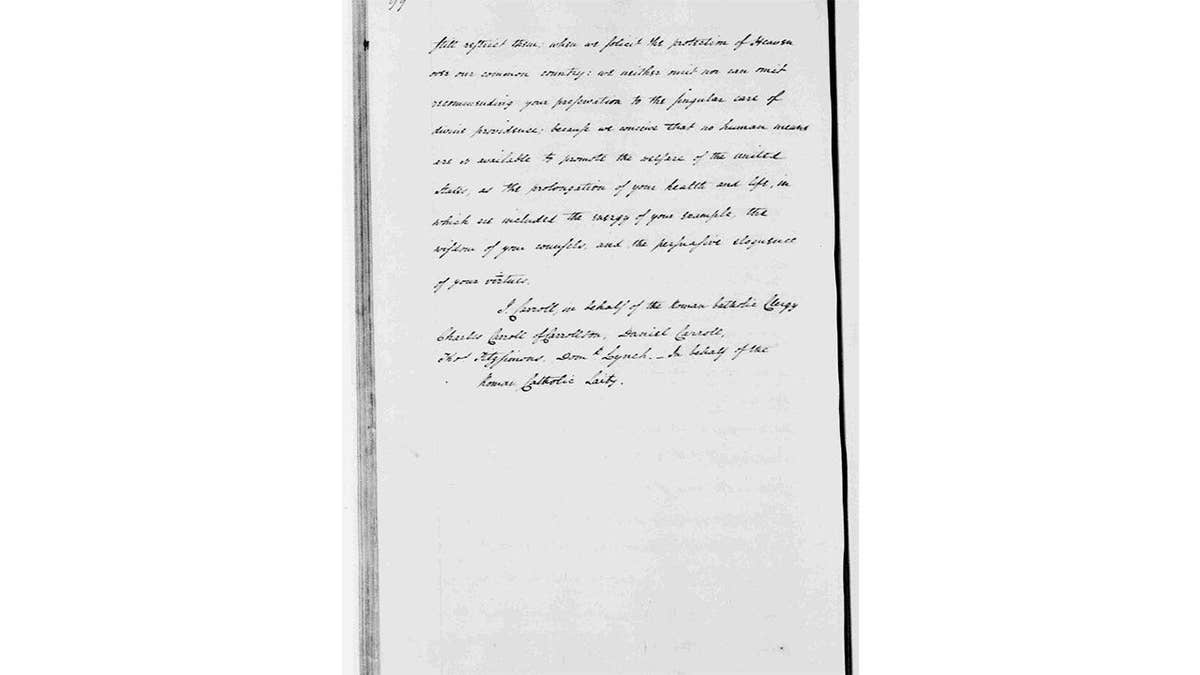 still restrict them; when we solicit the protection of Heaven
over our common country: we neither omit nor can omit
recommending your preservation to the singular care of
divine providence; because we conceive that no human means
are so available to promote the welfare of the united
States, as the prolongation of your health and life, in
which are included the energy of your example, the
wisdom of your counsels, and the persuasive eloquence
of your virtues.
J. Carroll, in behalf of the Roman Catholic Clergy
Charles Carroll of Carrollton, Daniel Carroll,
Thos Fitzsimons, Domk Lynch. – In behalf of the
Roman Catholic Laity.